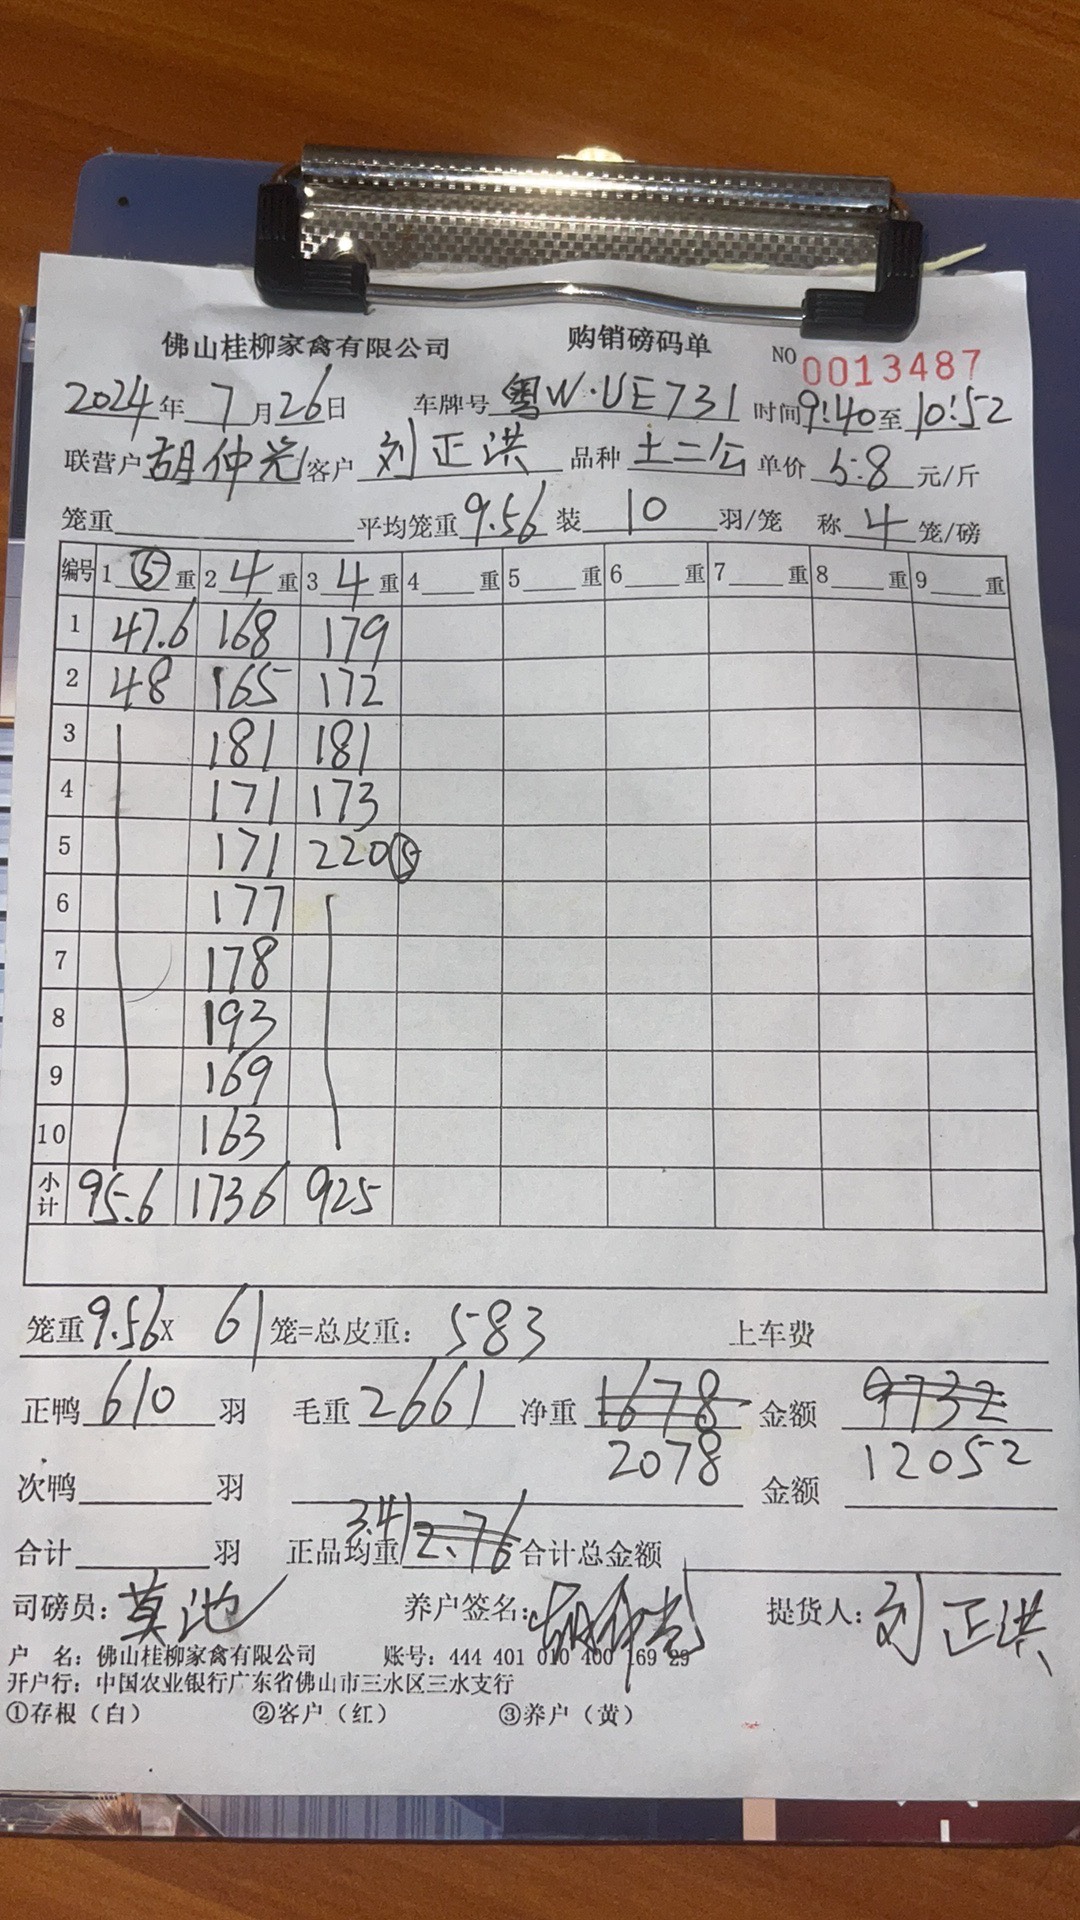 佛山桂柳家禽有限公司 购销磅码单 NO 0013487
2024年 7 月 26 日 车牌号 粤W·UE731 时间 9:40 至 10:52
联营户 胡仲光 客户 刘正洪 品种 土二公 单价 5.8 元/斤
笼重 平均笼重 9.56 装 10 羽/笼 称 4 笼/磅
编号 1 ⑤ 重 2 4 重 3 4 重 4 重 5 重 6 重 7 重 8 重 9 重
1 47.6 168 179
2 48 165 172
3 181 181
4 171 173
5 171 220 ⑤
6 177
7 178
8 193
9 169
10 163
小计 95.6 1736 925
笼重 9.56 X 61 笼=总皮重: 583 上车费
正鸭 610 羽 毛重 2661 净重 1678 金额 9732
2078 12052
次鸭 羽 金额
3.41
合计 羽 正品均重 2.76 合计总金额
司磅员: 莫池 养户签名: 提货人: 刘正洪
户 名: 佛山桂柳家禽有限公司 账号: 444 401 010 400 169 29
开户行: 中国农业银行广东省佛山市三水区三水支行
①存根(白) ②客户(红) ③养户(黄)